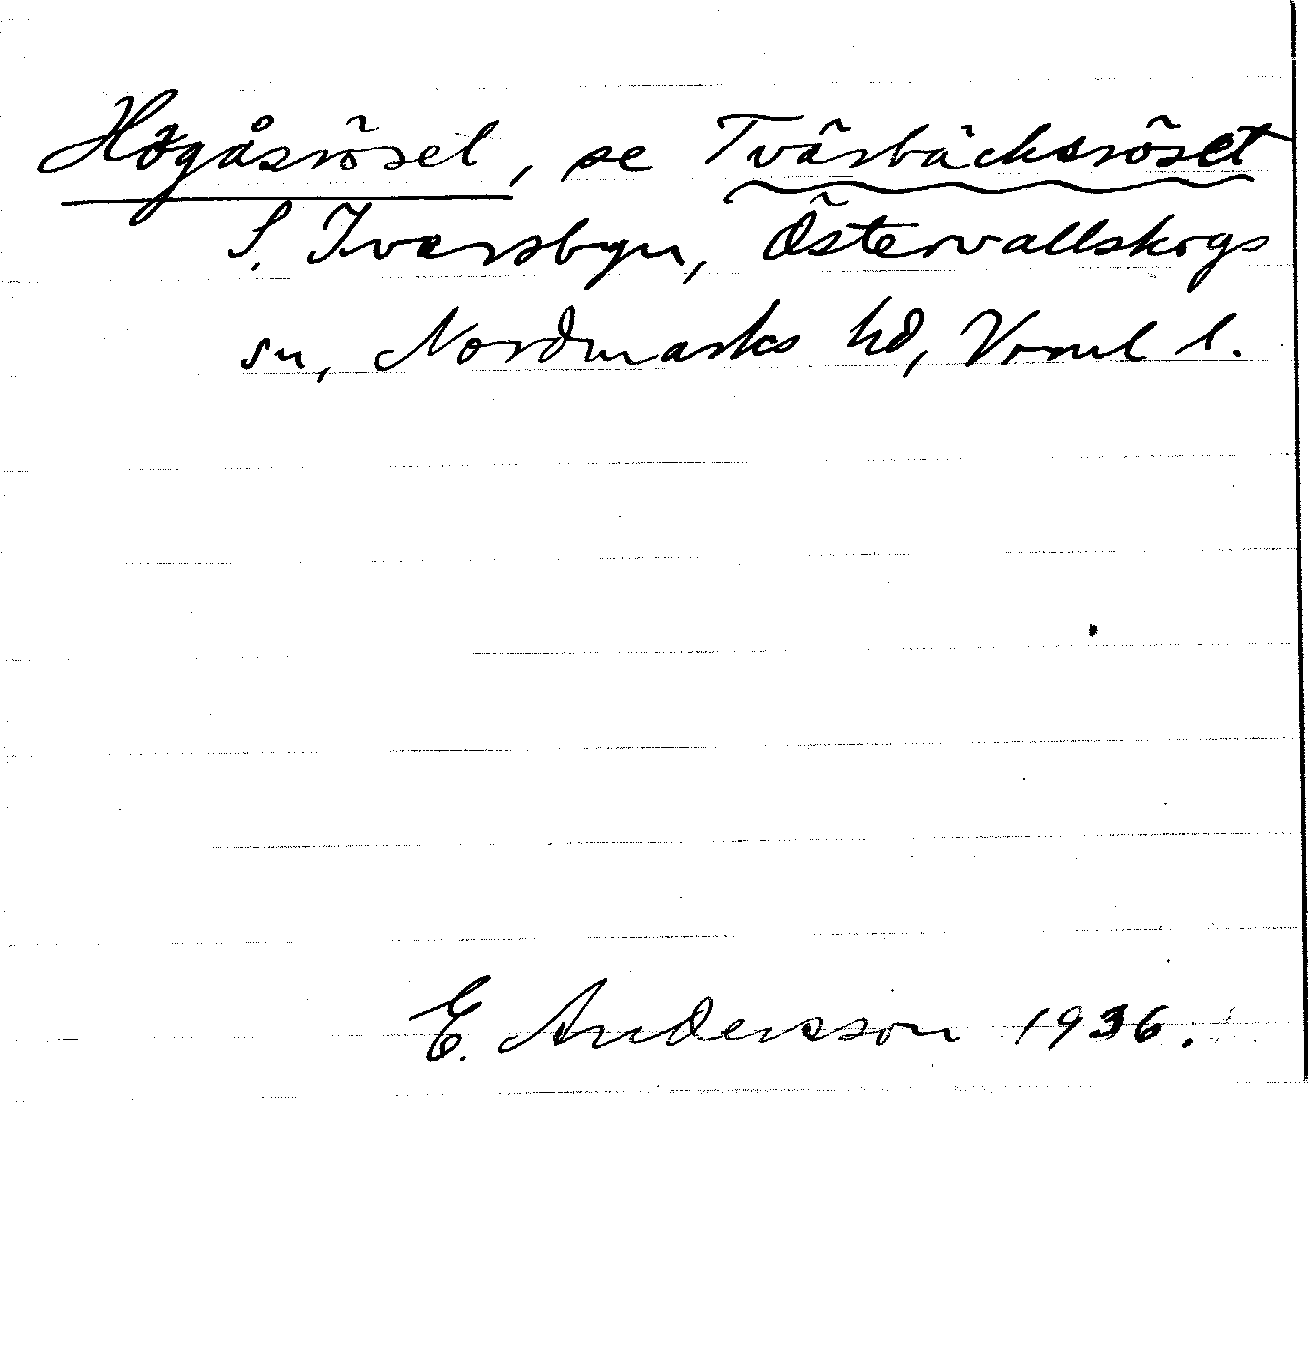 Högåsröset, se Tvärbäcksröset
S. Ivarsbyn, Östervallskogs
sn, Nordmarks hd, Vrml l.
E. Andersson 1936.